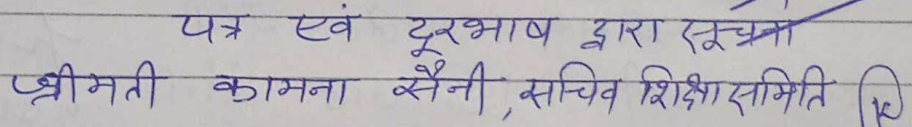 पत्र एवं दूरभाष द्वारा सूचना
श्रीमती कामना सैनी, सचिव शिक्षा समिति